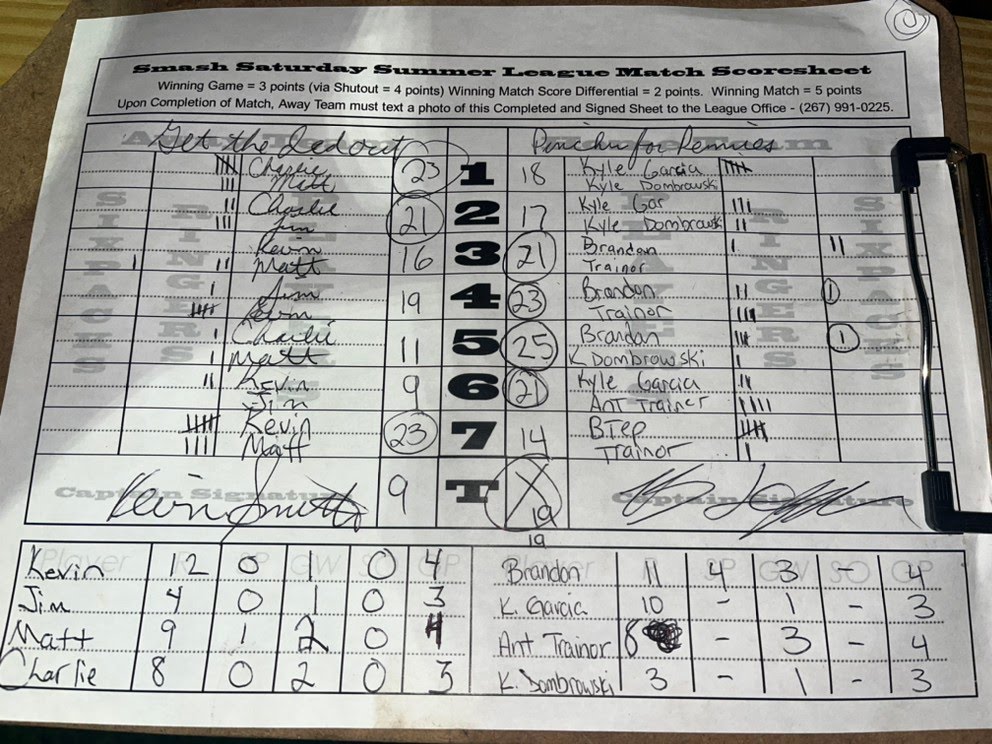 Smash Saturday Summer League Match Scoresheet
Winning Game = 3 points (via Shutout = 4 points) Winning Match Score Differential = 2 points. Winning Match = 5 points
Upon Completion of Match, Away Team must text a photo of this Completed and Signed Sheet to the League Office - (267) 991-0225.
Get the Led out Pinchin for Pennies
Charlie 23 1 18 Kyle Garcia
Matt Kyle Dombrowski
Charlie 21 2 17 Kyle Gar
Jim Kyle Dombrowski
Kevin 16 3 21 Brandon
Matt Trainor
Jim 19 4 23 Brandon 1
Kevin Trainor
Charlie 11 5 25 Brandon 1
Matt K Dombrowski
Kevin 9 6 21 Kyle Garcia
Jim Ant Trainer
Kevin 23 7 14 BTep
Matt Trainor
Captain Signature 9 T 19 Captain Signature
Kevin Smith
19
Player R SP GW SO GP Player R SP GW SO GP
Kevin 12 0 1 0 4 Brandon 11 4 3 - 4
Jim 4 0 1 0 3 K. Garcia 10 - 1 - 3
Matt 9 1 2 0 4 Ant Trainor 8 - 3 - 4
Charlie 8 0 2 0 3 K. Dombrowski 3 - 1 - 3